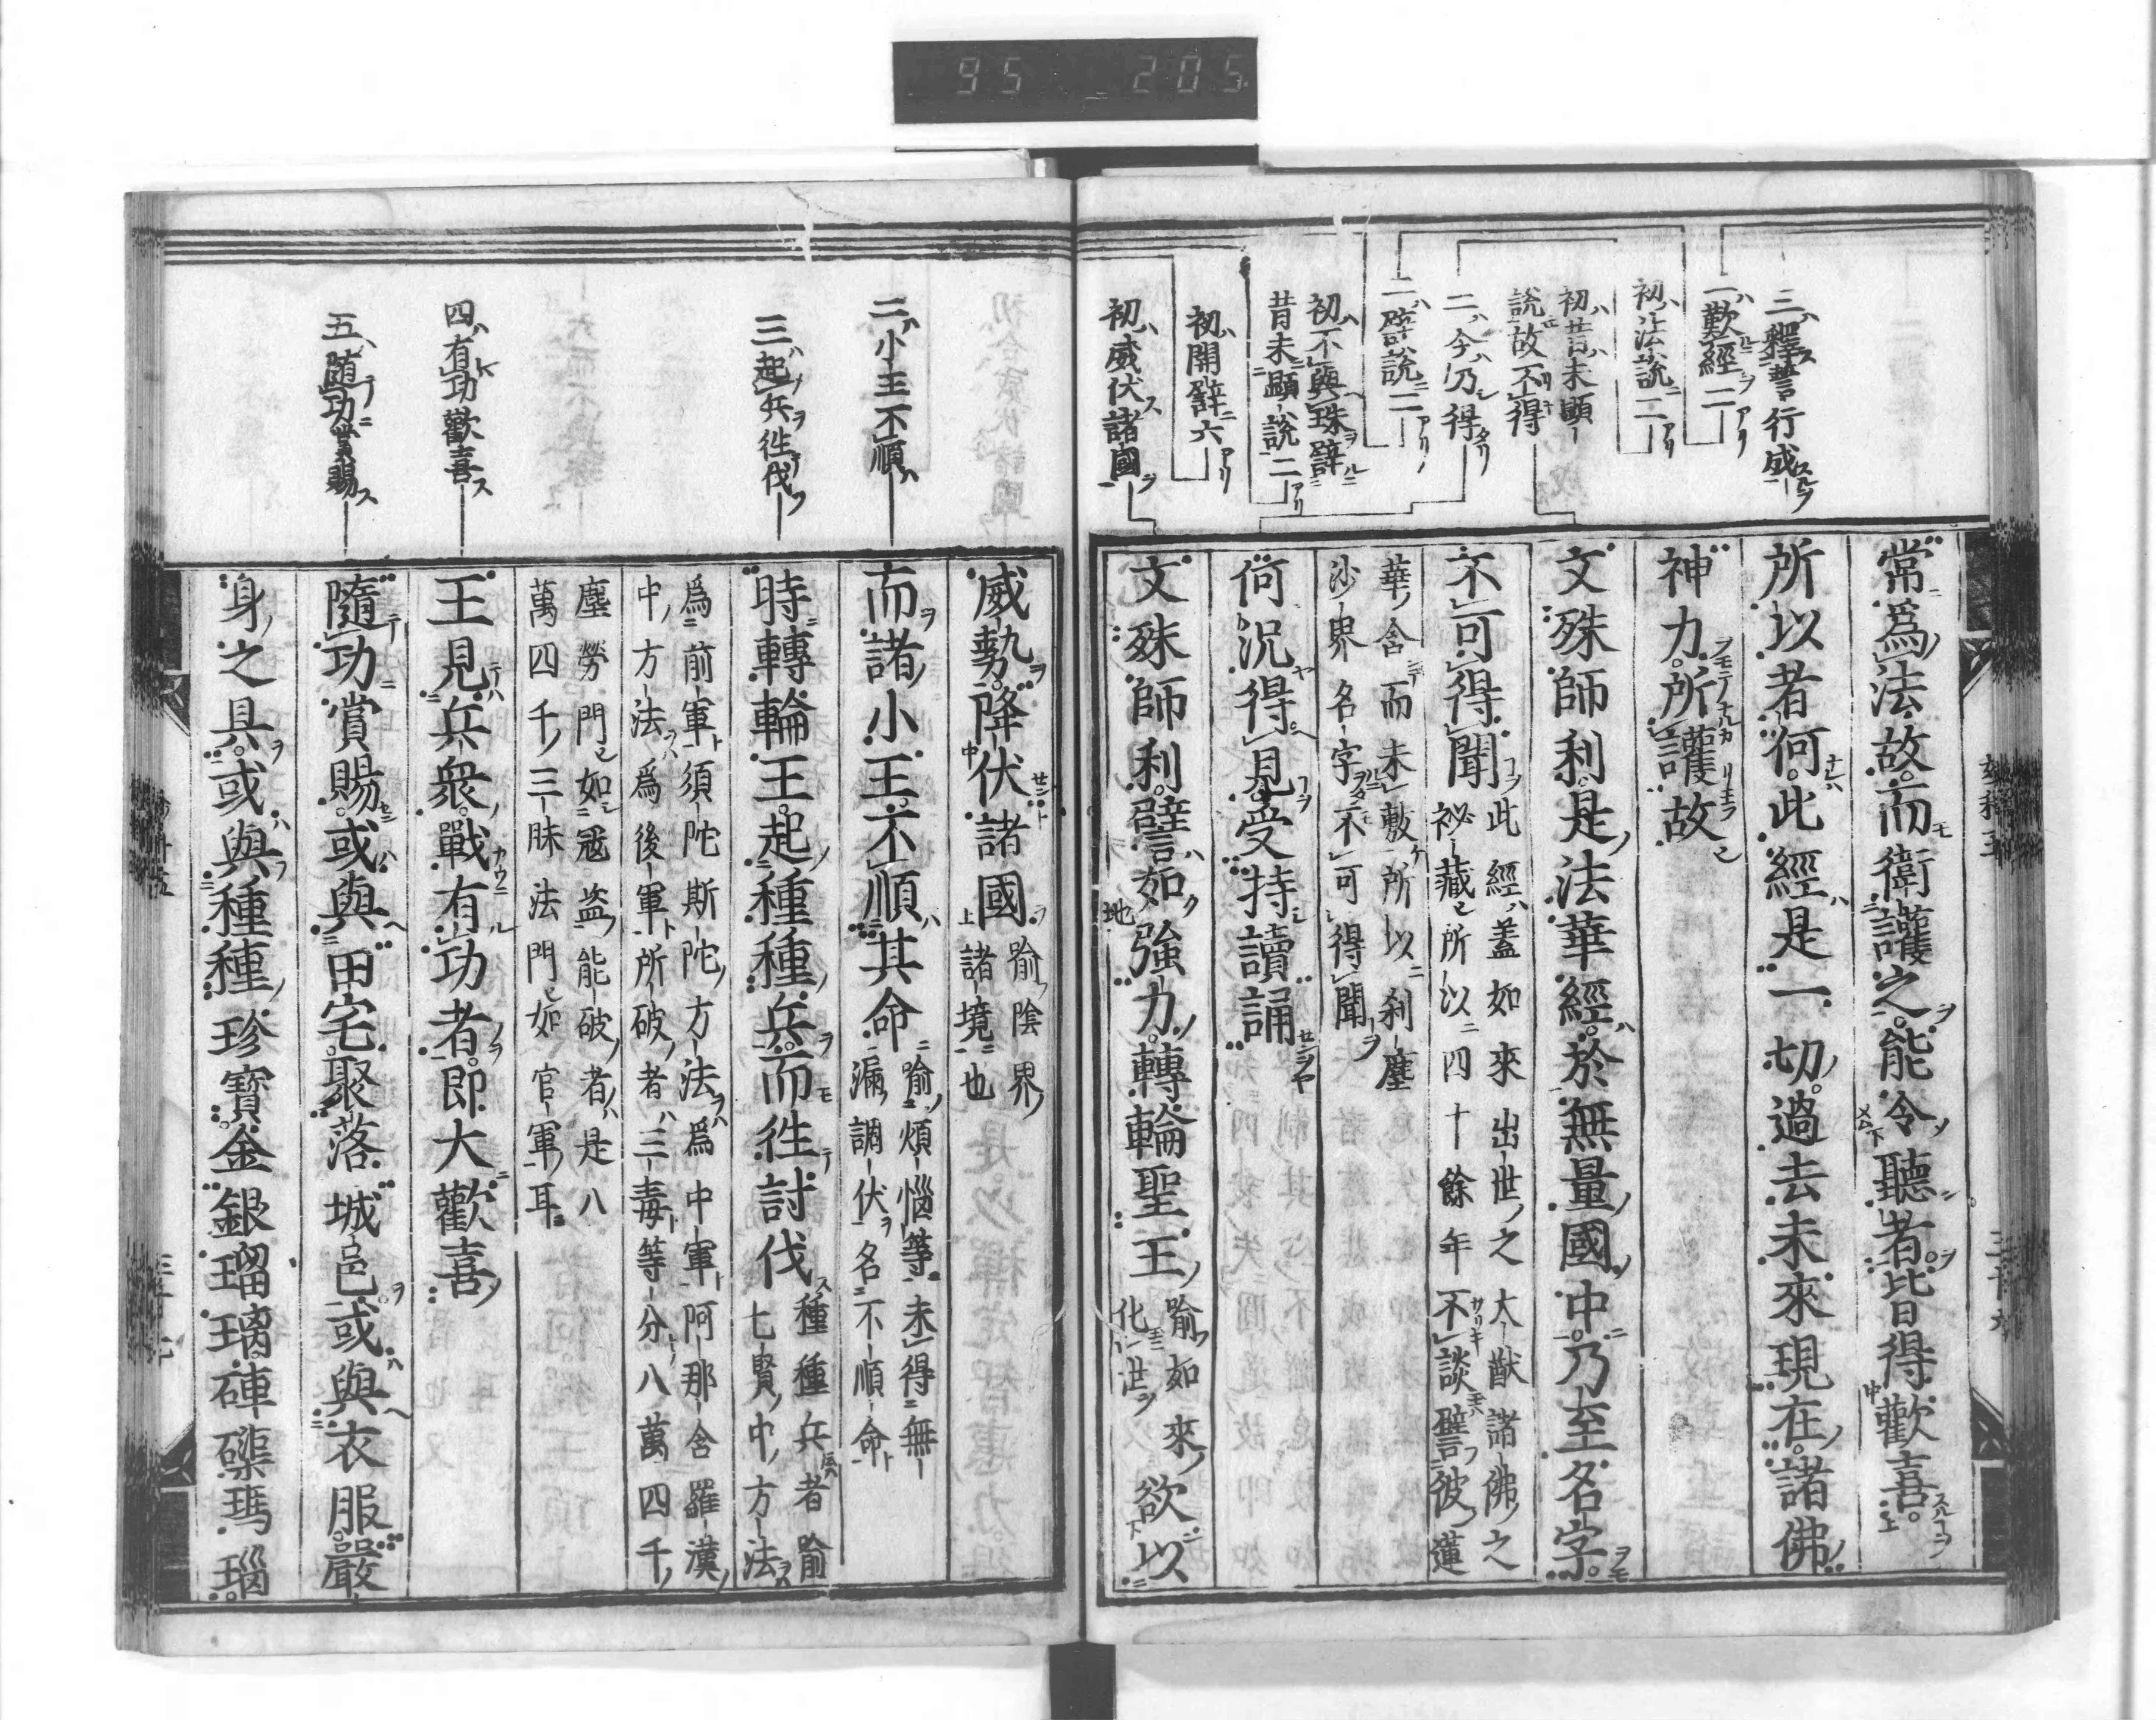 95 205
三釋誓行感
二歎經二
初法說二
初昔未顯
說故不得
二今乃得
二譬說二
初不與珠譬
昔未顯說二
初開譬六
初威伏諸國
常爲法故而衛護之能令聽者皆得歡喜
所以者何此經是一切過去未來現在諸佛
神力所護故
文殊師利是法華經於無量國中乃至名字
不可得聞
此經蓋如來出世之大猷諸佛之
祕藏所以四十餘年不談譬彼蓮
華含而未敷所以刹塵
沙界名字不可得聞
何況得見受持讀誦
文殊師利譬如強力轉輪聖王
喻如來
化世
欲以
二小王不順
三起兵往伐
四有功歡喜
五隨功賞賜
威勢降伏諸國
喻陰界
諸境也
而諸小王不順其命
喻煩惱等未得無
漏調伏名不順命
時轉輪王起種種兵而往討伐
種種兵者喻
七賢中方法
爲前軍須陀斯陀方法爲中軍阿那含羅漢
中方法爲後軍所破者三毒等分八萬四千
塵勞門如冦盗能破者是八
萬四千三昧法門如官軍耳
王見兵衆戰有功者即大歡喜
隨功賞賜或與田宅聚落城邑或與衣服嚴
身之具或與種種珍寶金銀瑠璃硨磲瑪瑙